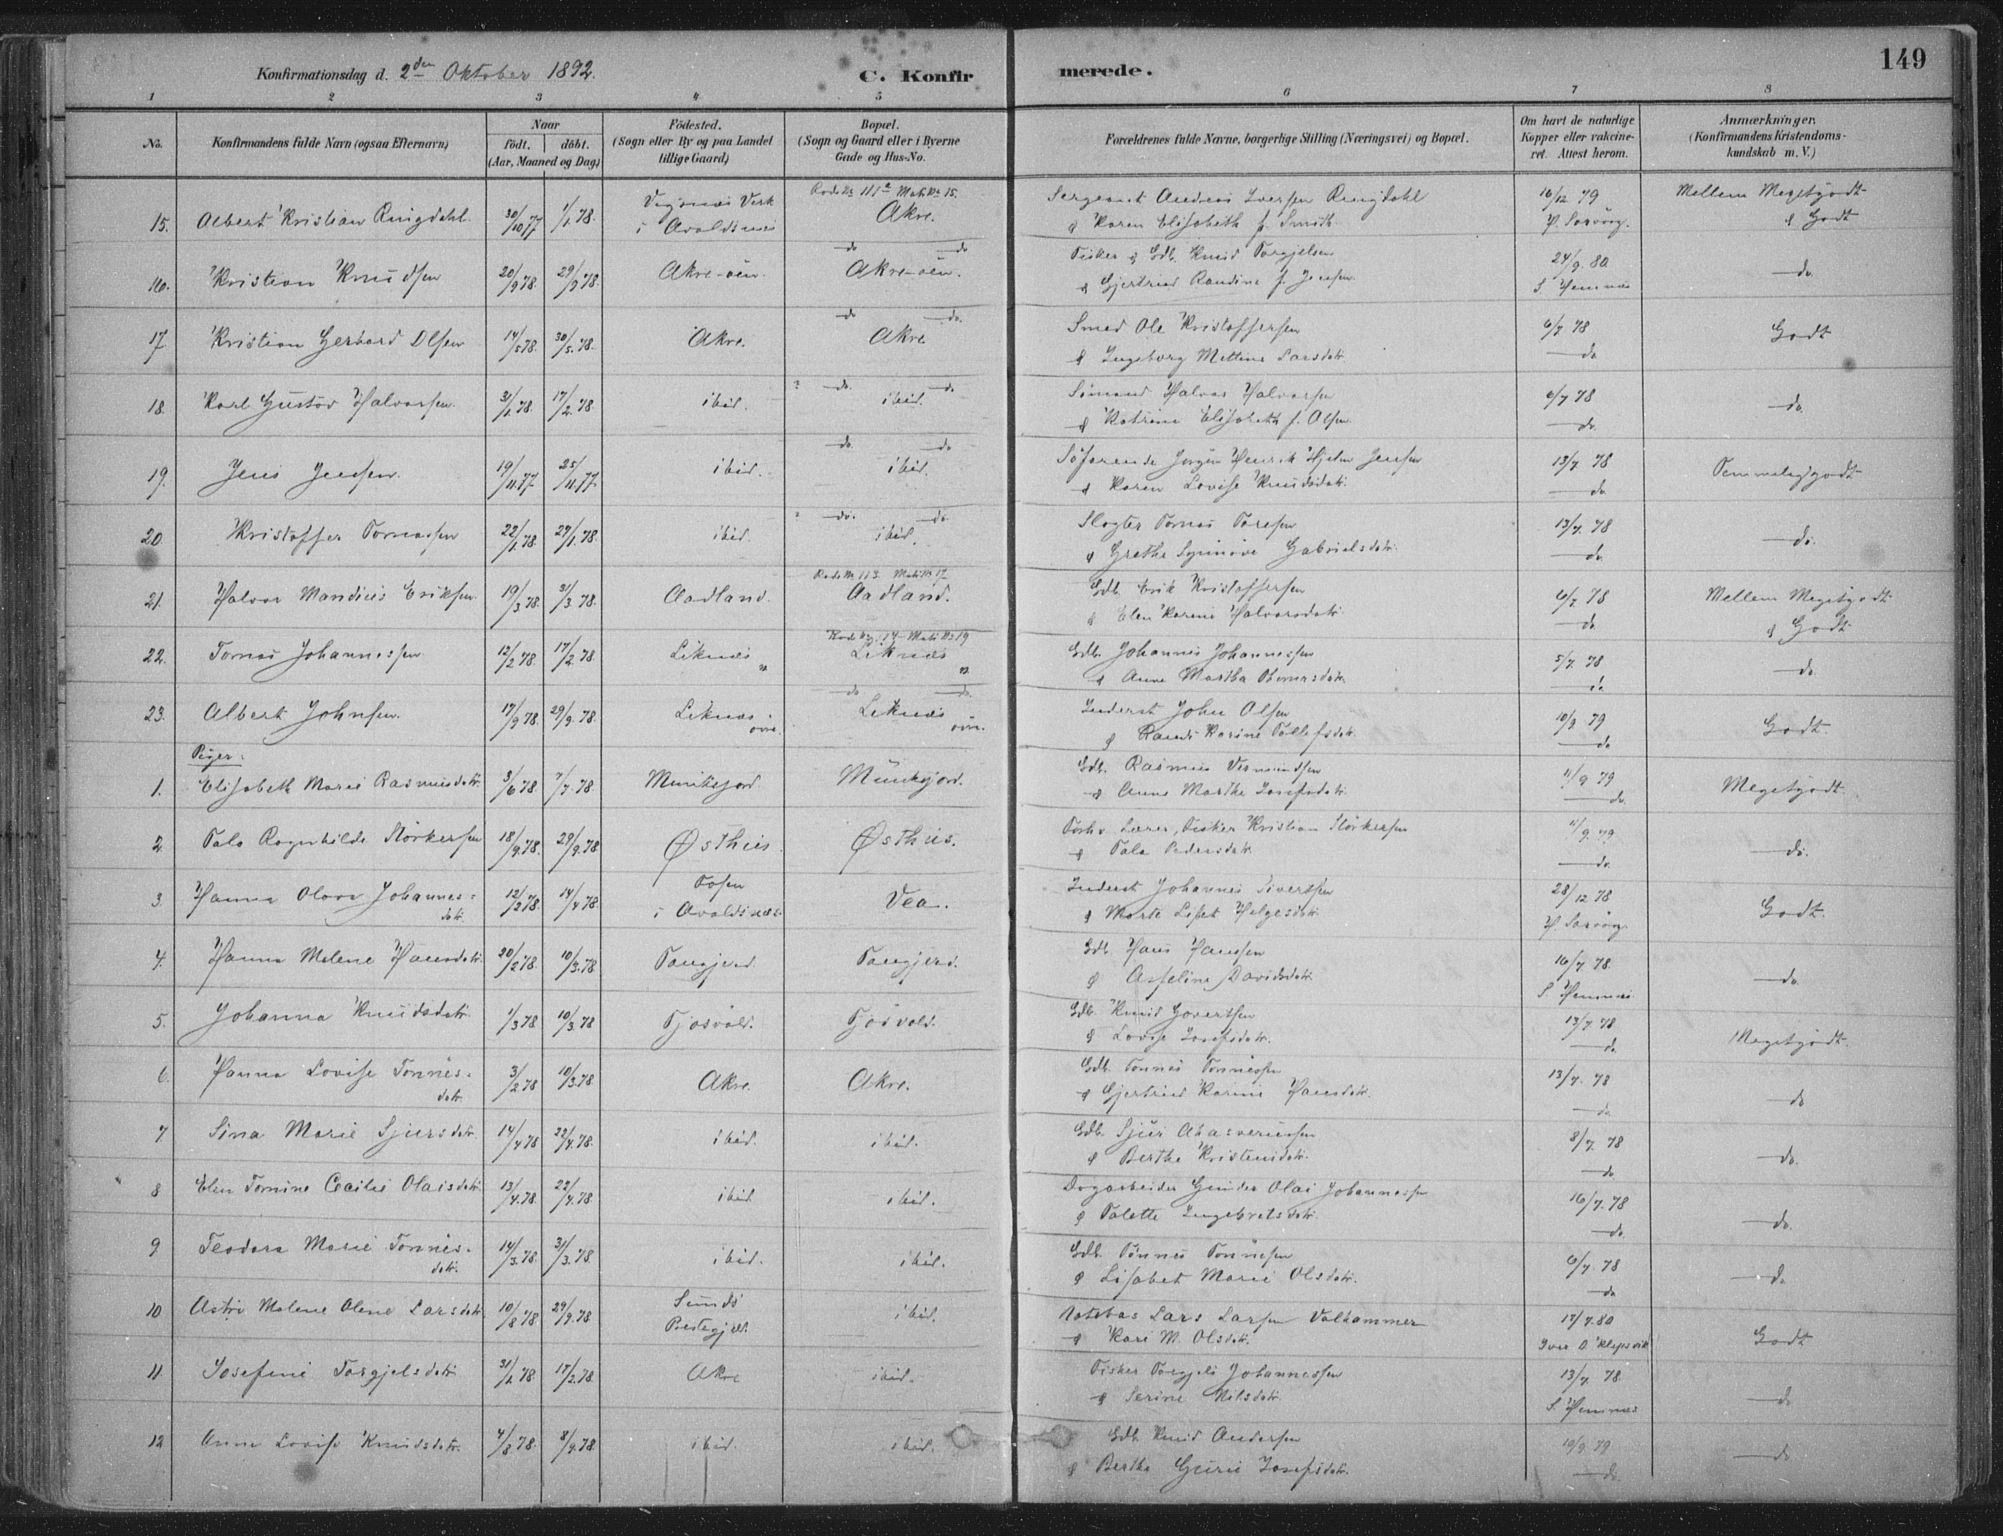 149
Konfirmationsdag d. 2den Oktober 1892. C. Konfirmerede.
1 2 3 4 5 6 7 8
No. Konfirmandens fulde Navn (ogsaa Efternavn) Naar födt. döbt. (Aar, Maaned og Dag) Födested. (Sogn eller By og paa Landet tillige Gaard) Bopæl. (Sogn og Gaard eller i Byerne Gade og Hus-No. Forældrenes fulde Navne, borgerlige Stilling (Næringsvei) og Bopæl. Om havt de naturlige Kopper eller vakcineret. Attest herom. Anmærkninger. (Konfirmandens Kristendomskundskab m. V.)
15. Albert Kristian Ringdahl. 30/10 77 1/1 78. i Avaldsnes Akre. Sergeant Andreas Iversen Ringdahl 16/12 79 Mellem Megetgodt
& Karen Elisabeth f. Smith & Godt
16. Kristian Knudsen 20/9 78 29/9 78. Akre-öen. do do Akre-öen. Fisker & Gdb. Knud Torgjelsen 24/9. 80 do.
& Gjertrud Randine f. Jensen S. Hemnæs
17. Kristian Gerhard Olsen 14/5 78 30/5. 78. Akre. do do. Akre. Smed Ole Kristoffersen 6/7 78 Godt
& Ingeborg Mettine Larsdatr. do
18. Karl Gustav Halvorsen. 31/1. 78. 17/2. 78 ibid. do. do ibid. Sömand Halvor Halvorsen 6/7 78 do.
& Katrine Elisabeth f. Olsen do.
19. Jens Jensen. 19/11. 77 25/11. 77. ibid. do. do ibid. Söfarende Jörgen Henrik Hjelm Jensen 13/7. 78 Temmeliggodt
& Karen Lovise Knudsdatr. do.
20. Kristoffer Tornassen 22/1. 78 27/1. 78. ibid. do. do. ibid. Slagter Tornas Toresen 13/7. 78 do.
& Grethe Synnöve Gabrielsdatr. do.
21. Halvor Mandius Eriksen. 19/3 78. 31/3 78. Aadland. Aadland. Gdb. Erik Kristoffersen 6/7 78 Mellem Megetgodt
& Elen Karine Halvorsdatr. do & Godt
22. Tornas Johannessen 12/2 78. 17/2. 78. Liknæs n. Liknæs n. Gdb. Johannes Johannessen 5/7. 78 do.
& Anne Martha do
23. Albert Johnsen. 17/9 78. 29/9. 78. Liknæs övre. do do. Liknæs övre. Inderst John Olsen 10/9. 79 Godt.
& Randi Karine Tollefsdatr. do
Piger:
1. Elisabeth Marie Rasmusdatr. 3/6 78 7/7. 78 Munkejord. Munkejord. Gdb. Rasmus Vermundsen 11/9 79 Megetgodt.
& Anne Marthe Josefsdatr. do.
2. Tala Ragnhilde Störkersen 18/9. 78. 29/9. 78 Østhus. Østhus. Forhv. Lærer, Fisker Kristian Störkersen 11/9. 79 do.
& Tala Pedersdatr. do.
3. Hanna Olava Johannes-
datr. 12/2 78. 14/4 78. Tosen i Avaldsnæs. Vea. Inderst Johannes Sivertsen 28/12 78 Godt.
& Marte Lisbet Helgesdatr.
4. Hanna Melene Hansdatr. 20/2 78 10/3. 78. Tangjerd. Tangjerd. Gdb. Hans Hansen 16/7 78. do.
& Asseline Davidsdatr. S. Hemnæs
5. Johanna Knudsdatr. 1/3 78 10/3. 78 Tjösvold. Tjösvold. Gdb. Knud Govertsen 13/7. 78 Megetgodt.
& Lovise Josefsdatr. do
6. Hanna Lovise Tönnes-
datr. 3/2 78 10/3. 78 Akre. Akre. Gdb. Tönnes Tönnessen 13/7. 78 do
& Gjertrud Karine Hansdatr. do
7 Sina Marie Sjursdatr. 14/4 78 22/4. 78. ibid. ibid. Gdb. Sjur Ahasverussen 8/7. 78 do.
& Berthe Kristensdatr. do
8 Elen Tomine Cecilie Olaisdatr. 13/4. 78. 22/4. 78 ibid. ibid. Dagarbeider Gunder Olai Johannessen 16/7. 78 do.
& Talette Ingebretsdatr. do.
9. Teodora Marie Tönnes-
datr. 14/3. 78. 31/3. 78. ibid. ibid. Gdb. Tönnes Tönnesen 6/7. 78 do
& Lisabet Marie Olsdatr. do
10 Astri Malene Olene Larsdatr. 10/8 78 29/9. 78 Sunds Prestegjæld. ibid. Notebas Lars Larsen Valhammer 17/7. 80 Godt
& Kari M. Olsdatr. Iver O Klepsvik
11. Josefine Torgjelsdatr. 31/1 78 17/2. 78. Akre ibid. Fisker Torgjels Johannessen 13/7. 78. do
& Serine Nilsdatr. S. Hemnæs
12 Anna Lovise Knudsdatr. 4/8 78. 8/9. 78 ibid. ibid. Gdb. Knud Andersen 10/9. 79 do
& Berthe Gurie Josefsdatr. do.